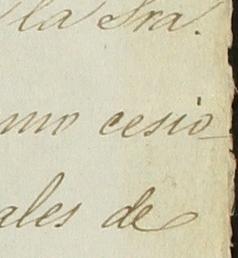 la Sra.
mo cesio-
ales de